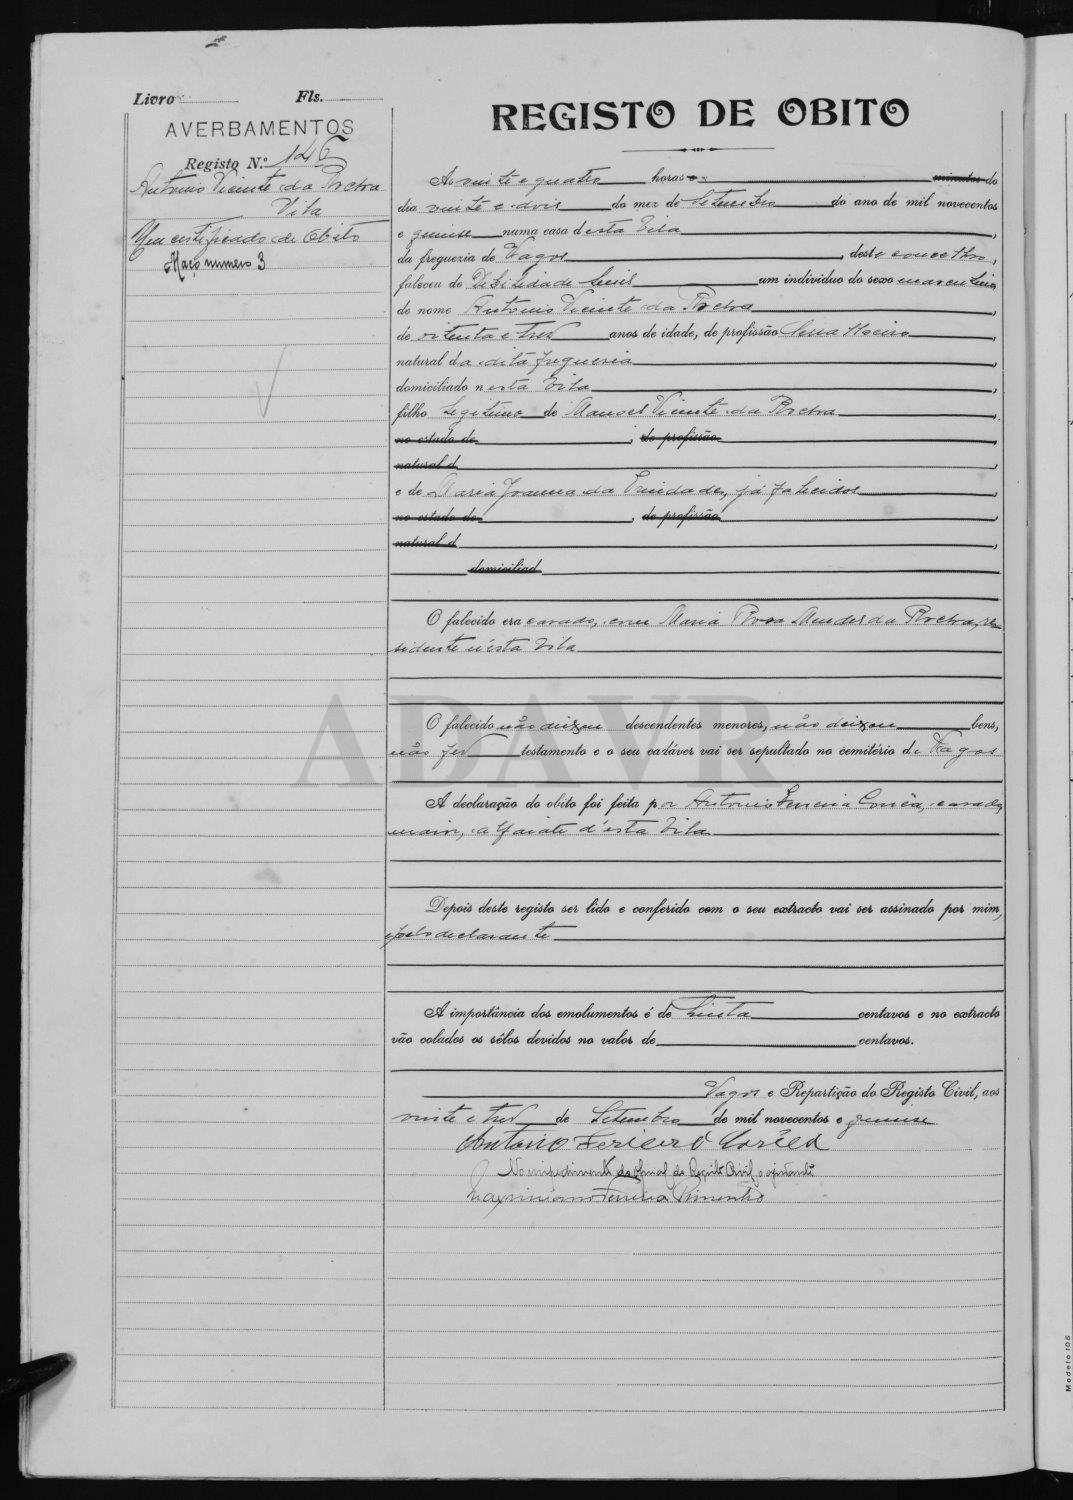 Livro Fls.
AVERBAMENTOS
Registo N.º 126
Antonio Vicente da Rocha
Vila
Um certificado de obito
Maço numero 3
REGISTO DE OBITO
Ás vinte e quatro horas e minutos do
dia vinte e dois do mez de Setembro do ano de mil novecentos
e quinse numa casa desta Vila,
da freguezia de Vagos, deste concelho,
faleceu de Debilidade senil um individuo do sexo masculino
de nome Antonio Vicente da Rocha,
de oitenta e tres anos de idade, de profissão Serralheiro,
natural da dita freguesia,
domiciliado nesta Vila,
filho legitimo de Manoel Vicente da Rocha,
no estado de, de profissão,
natural d,
e de Maria Joanna da Trindade, já falecidos,
no estado de, de profissão,
natural d,
domiciliad
O falecido era casado, com Maria Rosa Mendes da Rocha, re-
sidente n'esta Vila
ADAVR
O falecido não deixou descendentes menores, não deixou bens,
não fez testamento e o seu cadáver vai ser sepultado no cemitério de Vagos
A declaração do obito foi feita por Antonio Ferreira Corrêa, casado,
maior, alfaiate d'esta Vila
Depois deste registo ser lido e conferido com o seu extracto vai ser assinado por mim,
e pelo declarante
A importância dos emolumentos é de trinta centavos e no extracto
vão colados os sêlos devidos no valor de centavos.
Vagos e Repartição do Registo Civil, aos
vinte e tres de Setembro de mil novecentos e quinse
Antonio Ferreira Corrêa
No impedimento do oficial do Registo Civil o ajudante
Maximiano Ferreira Pimentel
Modelo 105